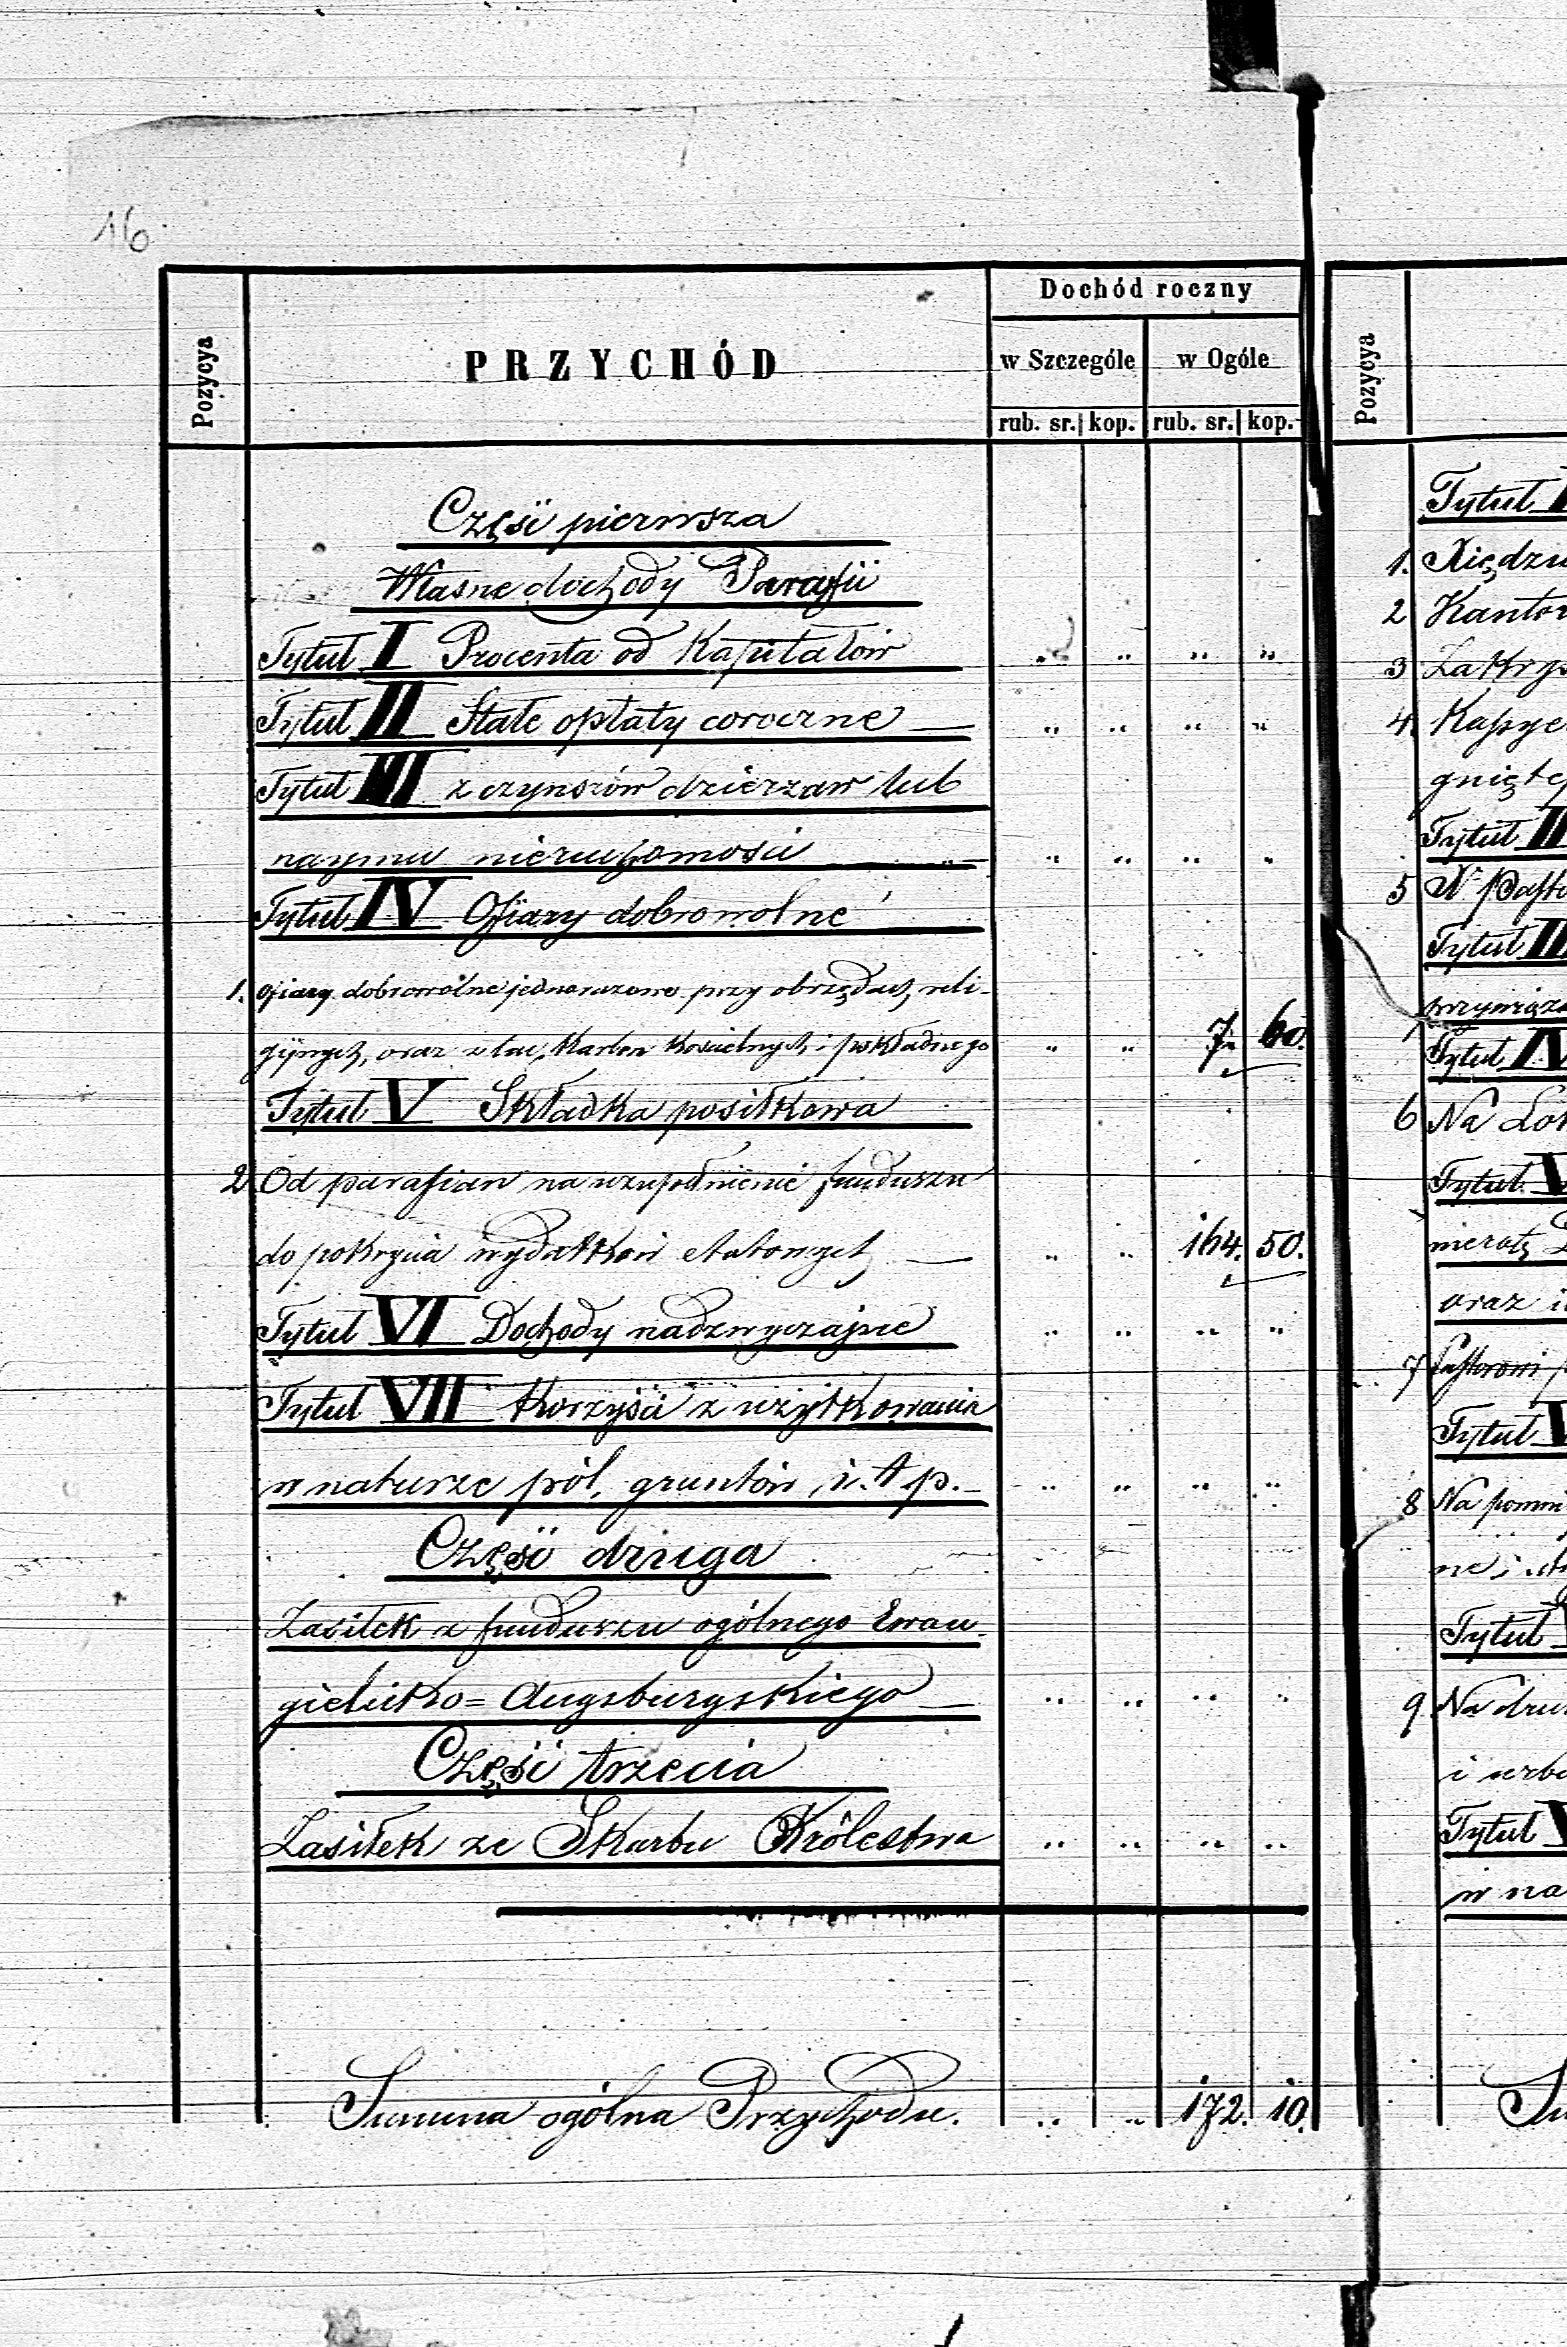 16
Pozycya
PRZYCHÓD
Dochód roczny
w Szczególe
w Ogóle
rub. sr. kop. rub. sr. kop.
Część pierwsza
Własne dochody Parafii
Tytuł I Procenta od Kapitałów " " " "
Tytuł II Stałe opłaty coroczne — " " " "
Tytuł III z czynszów dzierżaw lub
najmu nieruchomości — " " " "
Tytuł IV Ofiary dobrowolne
1. Ofiary dobrowolne jednorazowe przy obrzędach reli-
gijnych, oraz z tac, Karbon Kościelnych i pokładnego " " 7 60.
Tytuł V Składka posiłkowa
2 Od parafian na uzupełnienie funduszu
do pokrycia wydatków etatowych — " " 164. 50.
Tytuł VI Dochody nadzwyczajne " " " "
Tytuł VII Korzyści z użytkowania
w naturze pól, gruntów, i. t p. — " " " "
Część druga
Zasiłek z funduszu ogólnego Ewan-
gielicko= Augsburgskiego — " " " "
Część trzecia
Zasiłek ze Skarbu Królestwa " " " "
Summa ogólna Przychodu. " " 172. 10.
Pozycya
Tytuł
1.
2 Kantor
3
4.
Tytuł II
5
Tytuł III
Tytuł IV
6 Na
Tytuł V
oraz
7
Tytuł V
8 Na
ne i
Tytuł
9 Na
i
Tytuł V
w na